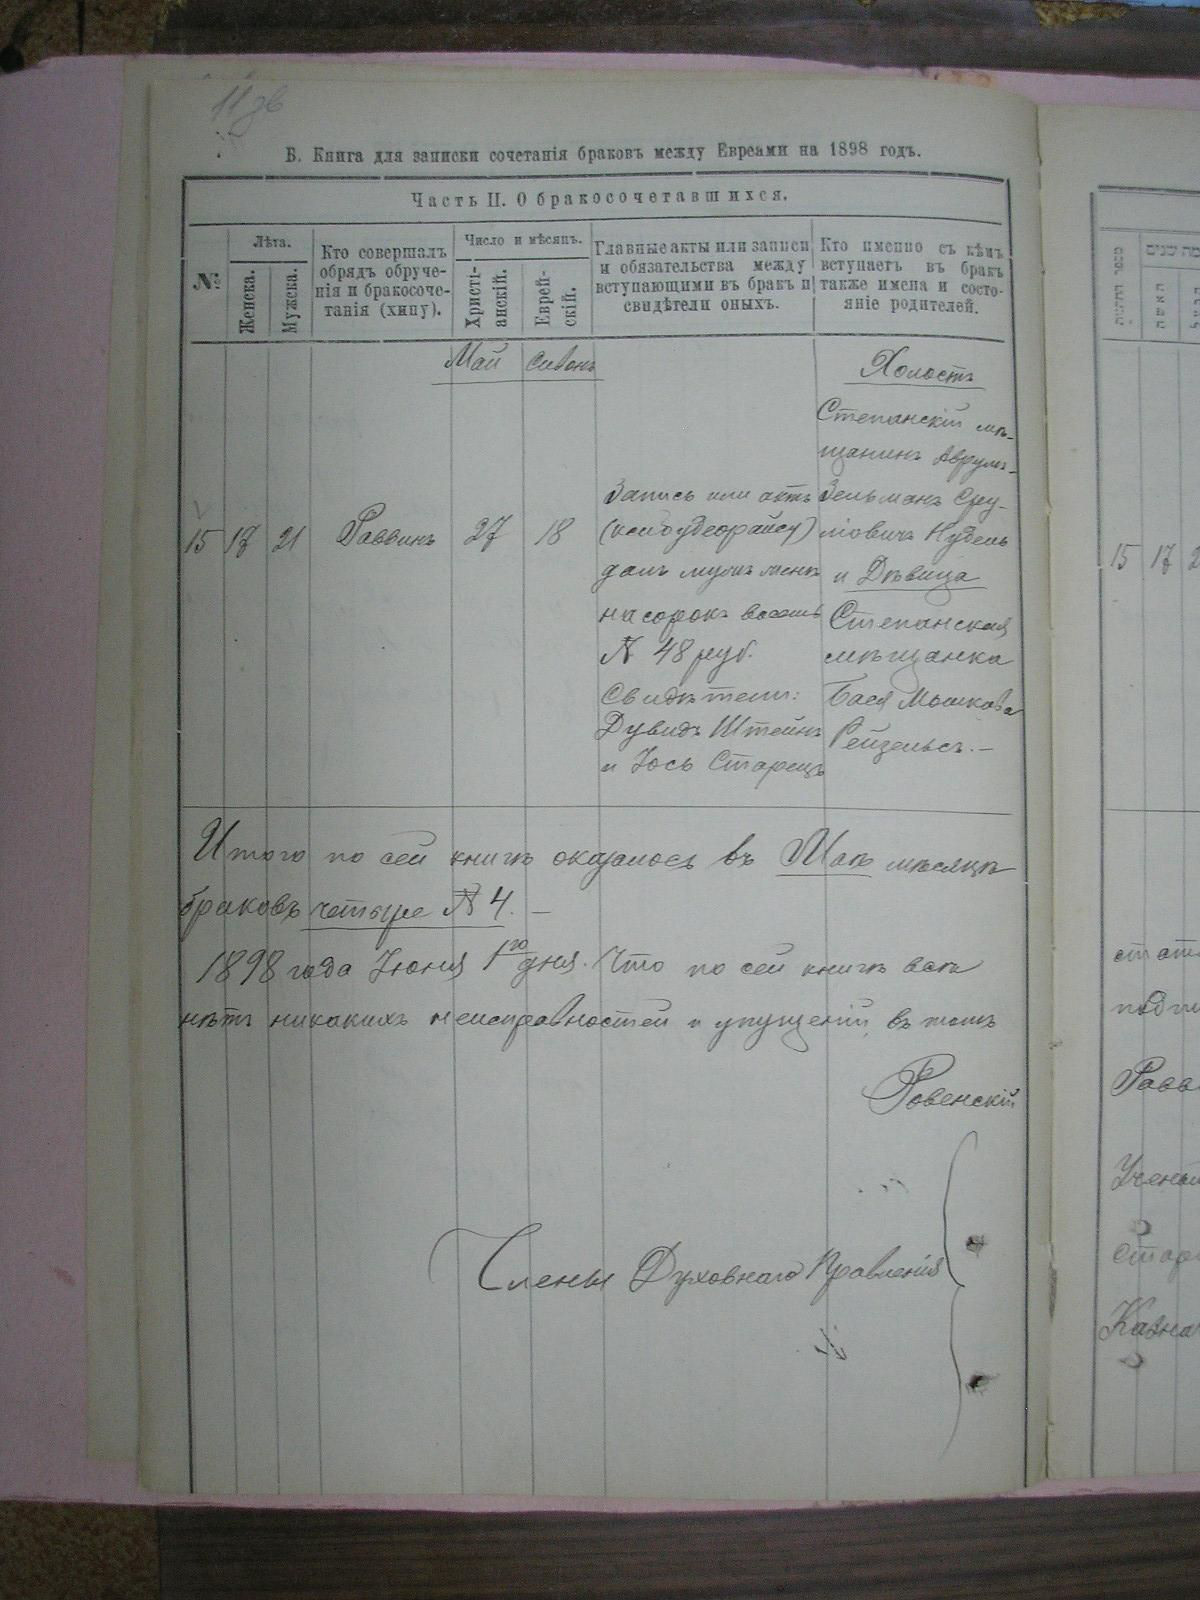 11 зв
Б. Книга для записки сочетанія браковъ между Евреами на 1898 годъ.
Часть II. О бракосочетавшихся.
№
Лѣта.
Женска.
Мужска.
Кто совершалъ
обрядъ обруче-
нія и бракосоче-
танія (хипу).
Число и мѣсяцъ.
Христі-
анскій.
Еврей-
скій.
Главные акты или записи
и обязательства между
вступающими въ бракъ и
свидѣтели оныхъ.
Кто именно съ кѣмъ
вступаетъ въ бракъ
также имена и состо-
яніе родителей.
Май Сивонъ
Холостъ
Степанскій мѣ-
щанинъ Аврумъ-
Зельманъ Сру-
міовичъ Нудель
и Дѣвица
Степанская
мѣщанка
Бася Мошкова
Рейзельсъ.—
15 17 21 Раввинъ 27 18
Запись или актъ
далъ мужъ женѣ
на сорокъ восемь
№ 48 руб.
Свидѣтели:
Дувидъ Штейнъ
и Іось Старецъ
Итого по сей книгѣ оказалось въ Маѣ мѣсяцѣ
браковъ четыре № 4. —
1898 года Іюня 1го дня. Что по сей книгѣ
нѣтъ никакихъ неисправностей и упущеній въ томъ
Ровенскій
Члены Духовнаго Правленія
15 17 2
Равв
Учены
Стар
Казна